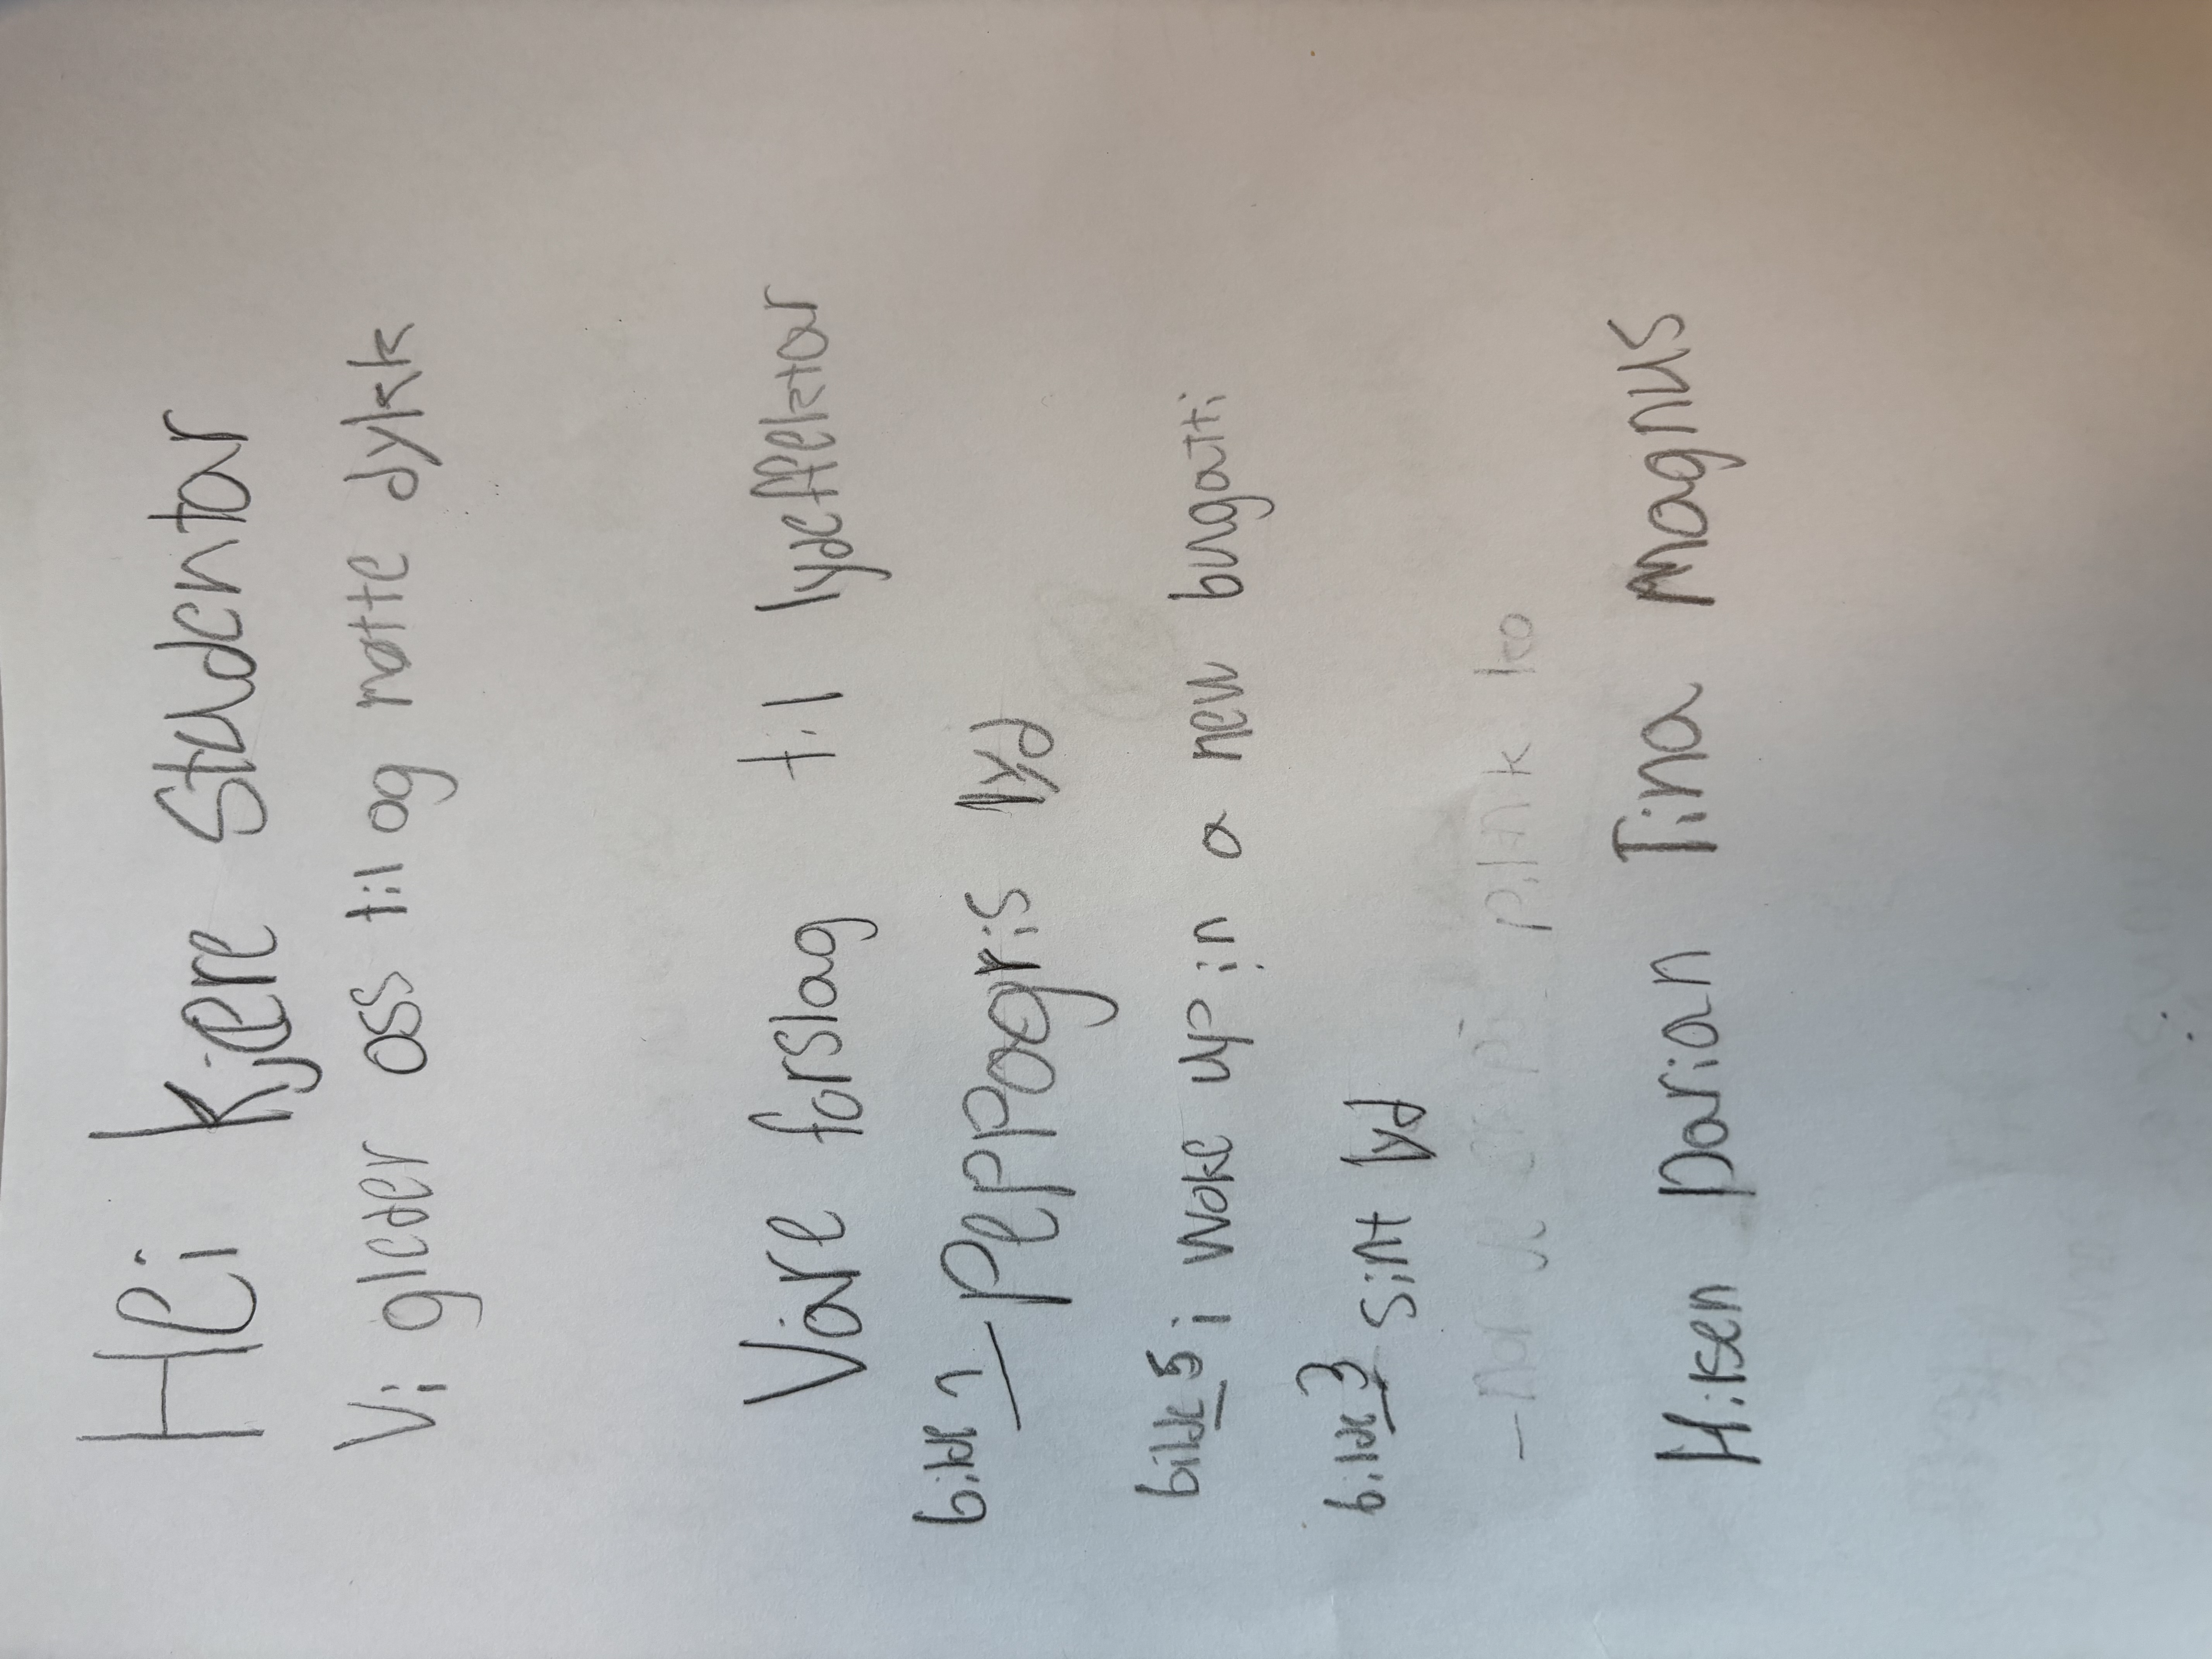 Hei Kjere Studentar
Vi gleder oss til og møtte dykk
Våre forslag til lydeffektar
bilde 1 – Peppagris lyd
bilde 5 i woke up in a new bugatti
bilde 3 sint lyd
Hilsen Darian Tina Magnus